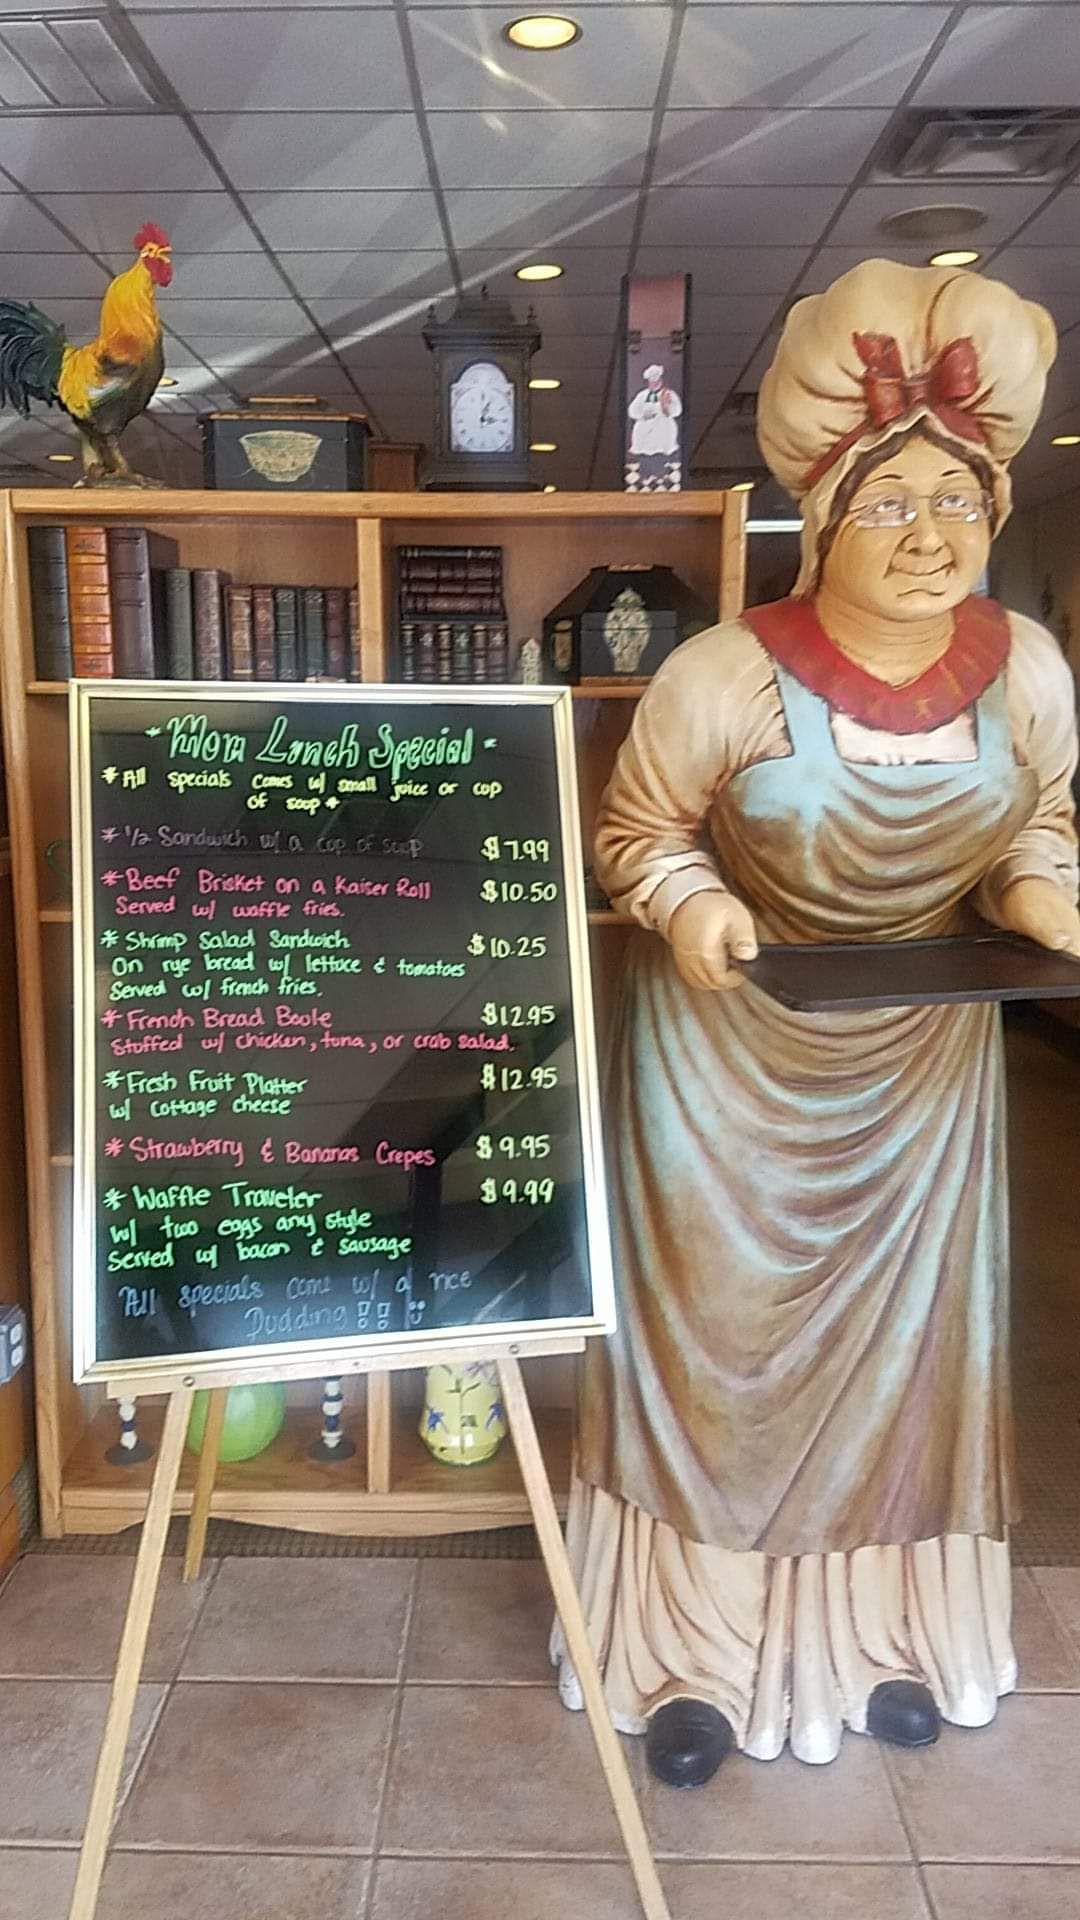 *Mom Lunch Special*
*All specials comes w/ small juice or cup
of soup*
*1/2 Sandwich w/ a cup of soup $7.99
*Beef Brisket on a Kaiser Roll $10.50
Served w/ waffle fries.
*Shrimp Salad Sandwich $10.25
On rye bread w/ lettuce & tomatoes
Served w/ french fries.
*French Bread Boule $12.95
Stuffed w/ chicken, tuna, or crab salad.
*Fresh Fruit Platter $12.95
w/ cottage cheese
*Strawberry & Bananas Crepes $9.95
*Waffle Traveler $9.99
w/ two eggs any style
Served w/ bacon & sausage
All specials come w/ a rice
Pudding!!